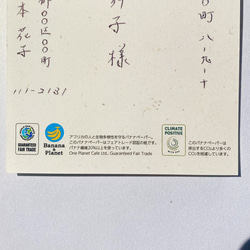 〇町 八-九-十
子様
都〇〇区〇〇町
本 花子
111-2131
GUARANTEED
FAIR TRADE
Banana
Planet
アフリカの人と生物多様性を守るバナナペーパー。
このバナナペーパーはフェアトレード認証の紙です。
バナナ繊維20%以上を使っています。
One Planet Café Ltd., Guaranteed Fair Trade
CLIMATE
POSITIVE
このバナナペーパーは
排出するCO₂より多くの
CO₂を削減しています。